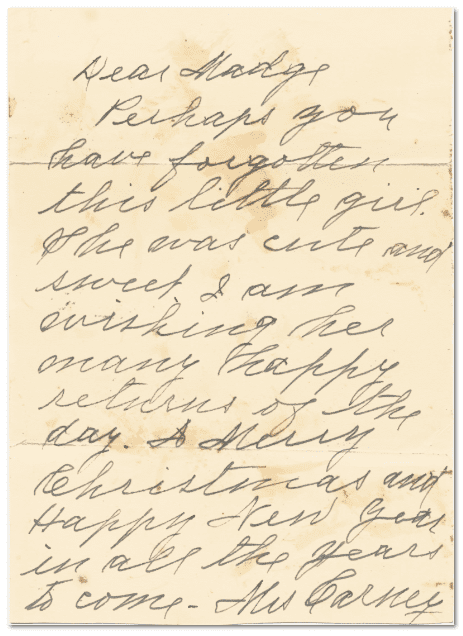 Dear Madge
Perhaps you
have forgotten
this little girl.
She was cute and
sweet I am
wishing her
many happy
returns of the
day. A Merry
Christmas and
Happy New Year
in all the years
to come - Mrs Carney